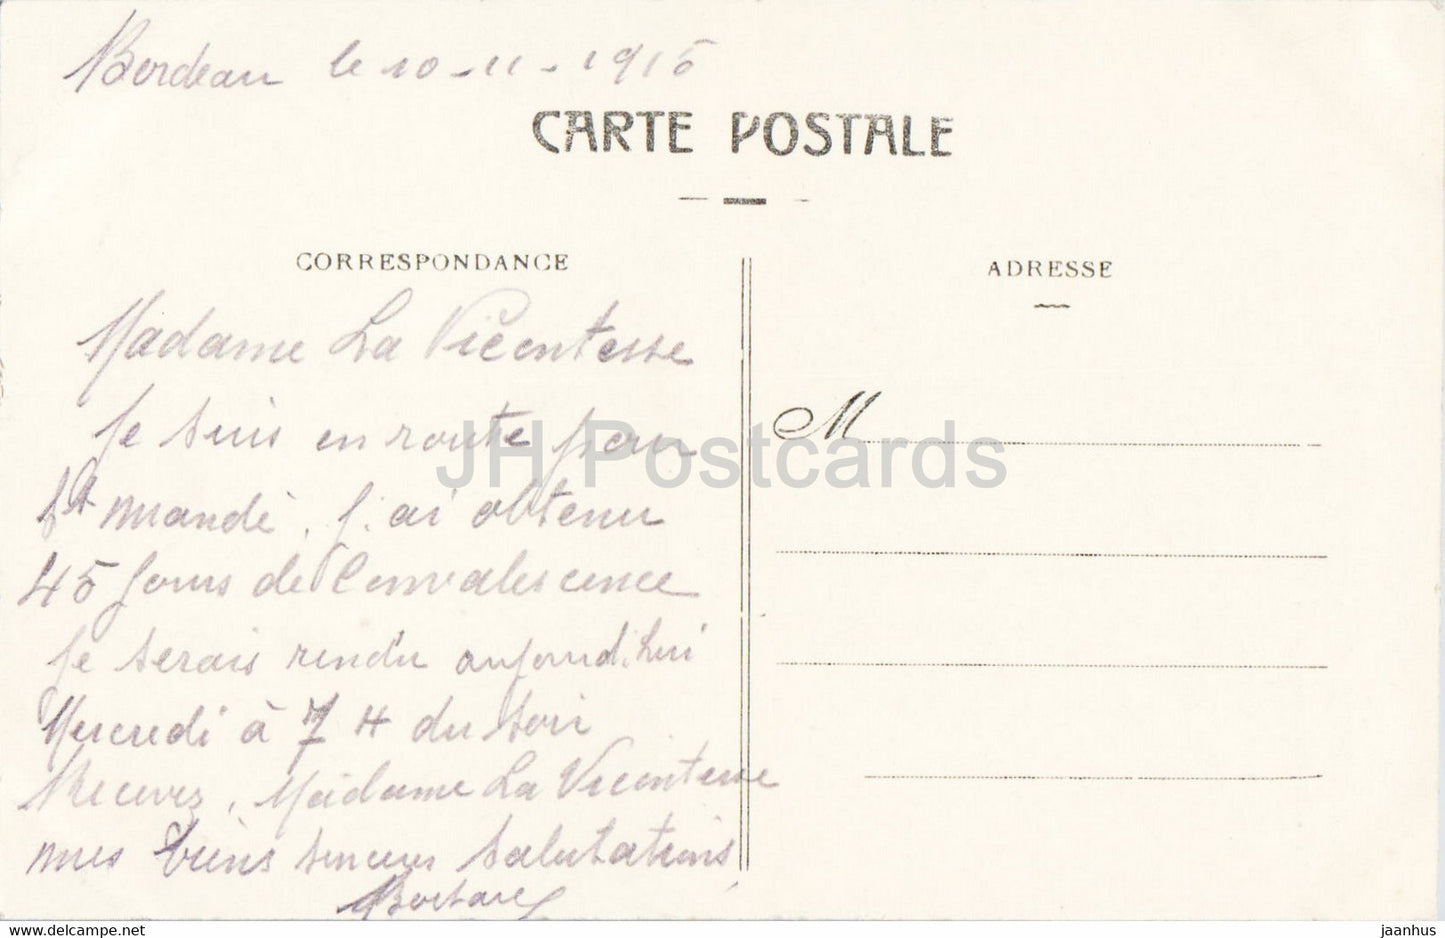 Bordeau le 10-11-1915
CARTE POSTALE
CORRESPONDANCE
ADRESSE
Madame La Vicentesse
Je suis en route pour
St mandé, J'ai obtenu
45 Jours de Convalescence
Je serais rendu aujourd'hui
Mercredi à 7 H du soir
Recevez, Madame La Vicontesse
mes biens sinceres Salutations
M
JH Postcards
www.hippostcard.com
jaanhus